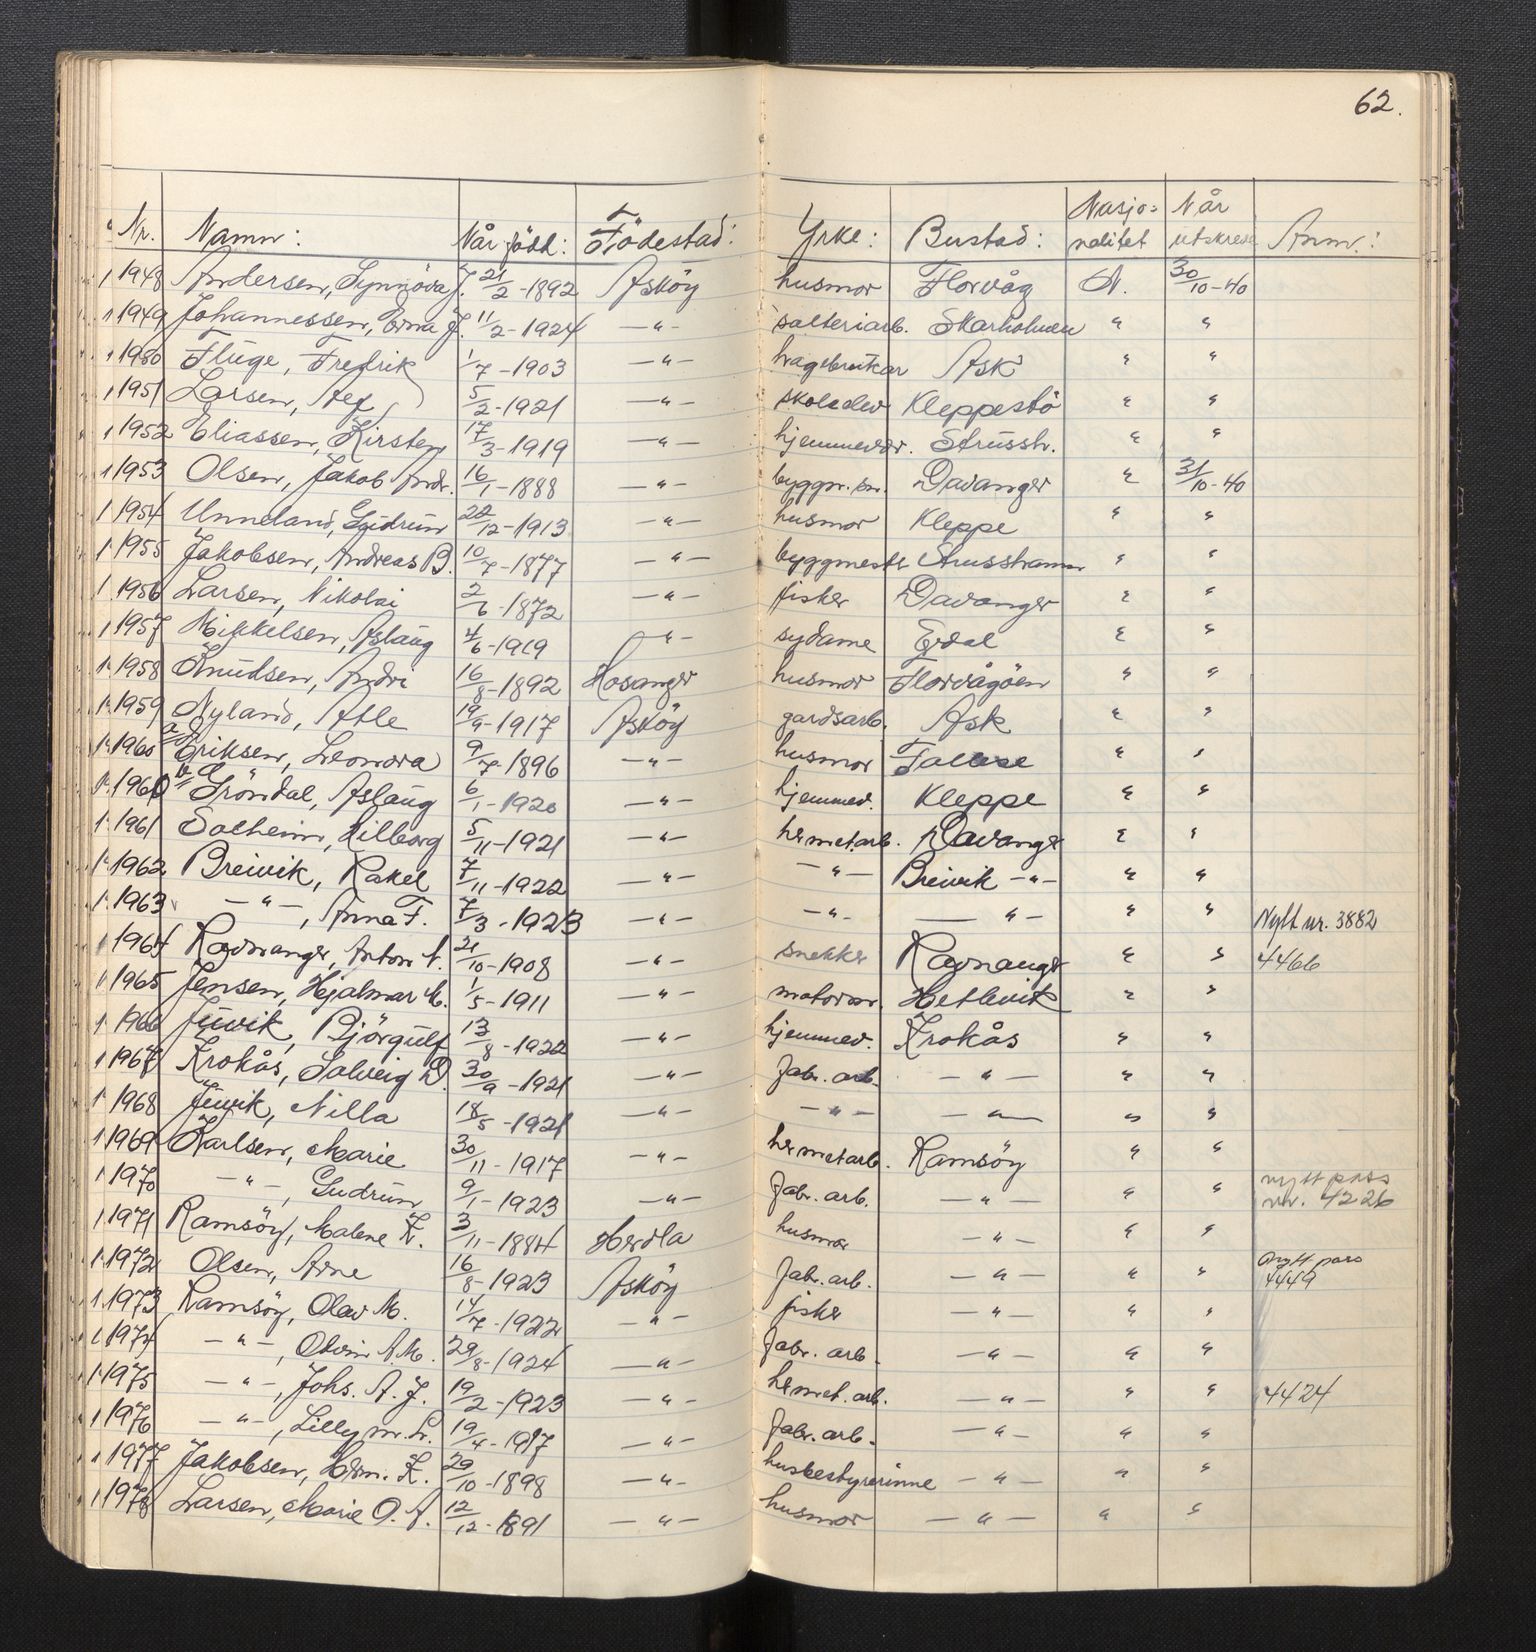 62.
Nr. Namn: Når född: Födestad: Yrke: Bustad: Nasjonalitet Når utskreve Anm.:
1948 Andersen, Synnöva J. 21/2-1892 Asköy husmor Florvåg N. 30/10-40
1949 Johannessen, Erna J. 11/2-1924 —"— salteriarb. Skarholmen " "
1950 Fluge, Fredrik 1/7-1903 —"— hagebrukar Ask " "
1951 Larsen, Alf 5/2-1921 —"— skoleelev Kleppestö " "
1952 Eliassen, Kirsten 17/3-1919 —"— hjemmevær. Strussh. " "
1953 Olsen, Jakob Andr. 16/1-1888 —"— byggm. sn. Davanger " 31/10-40
1954 Unneland, Gudrun 22/12-1913 —"— husmor Kleppe " "
1955 Jakobsen, Andreas B. 10/7-1877 —"— byggmester Strusshamn " "
1956 Larsen, Nikolai 2/6-1872 —"— fisker Davanger " "
1957 Mikkelsen, Aslaug 4/6-1919 —"— sydame Erdal " "
1958 Knudsen, Andri 16/8-1892 Hosanger husmor Florvågöen " "
1959 Nyland, Atle 19/9-1917 Asköy gardsarb. Ask " "
1960 a Eriksen, Leonora 9/7-1896 —"— husmor Follese " "
1960 b Gröndal, Aslaug 6/1-1920 —"— hjemmev. Kleppe " "
1961 Solheim, Hilborg 5/11-1921 —"— hermet.arb. Davanger " "
1962 Breivik, Rakel 7/11-1922 —"— —"— Breivik —"— " "
1963 —"—, Anna F. 7/3-1923 —"— —"— —"— " " Nytt nr. 3882
1964 Ravnanger, Anton N. 21/10-1908 —"— snekker Ravnanger " " 4466
1965 Jensen, Hjalmar M. 1/5-1911 —"— motorm. Hetlevik " "
1966 Juvik, Björgulf 13/8-1922 —"— hjemmev. Krokås " "
1967 Krokås, Solveig D. 30/9-1921 —"— fabr. arb. —"— " "
1968 Juvik, Nilla 18/5-1921 —"— —"— —"— " "
1969 Karlsen, Marie 30/11-1917 —"— hermetarb. Ramsöy " "
1970 —"—, Gudrun 9/1-1923 —"— fabr. arb. —"— " " nytt pass nr. 4226
1971 Ramsöy, Malene K. 3/11-1884 Herdla husmor —"— " "
1972 Olsen, Arne 16/8-1923 Asköy fabr. arb. —"— " " Nytt pass 4449
1973 Ramsöy, Olav M. 14/7-1922 —"— fisker —"— " "
1974 —"—, Odvin A.M. 29/8-1924 —"— fabr. arb. —"— " "
1975 —"—, Johs. A. J. 19/2-1923 —"— hermet. arb. —"— " " 4424
1976 —"—, Lilly m. L. 19/4-1917 —"— fabr. arb. —"— " "
1977 Jakobsen, Herm. K. 29/10-1898 —"— husbestyrerinne —"— " "
1978 Larsen, Marie O. A. 12/12-1891 —"— husmor —"— " "